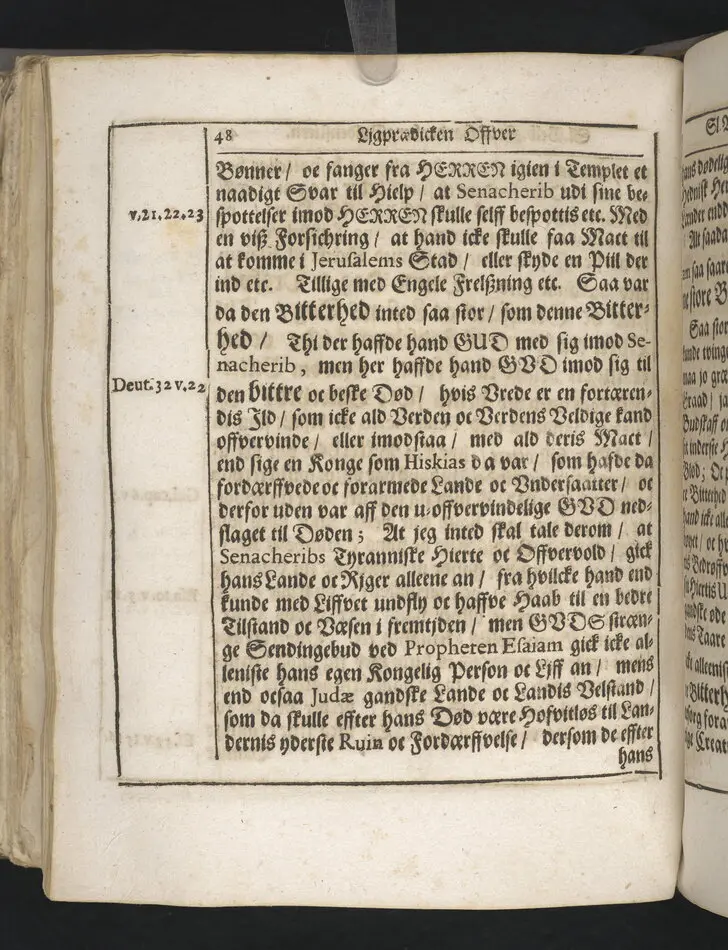 48 Ljgprædicken Offver
Bønner / oc fanger fra HERREN igien i Templet et
naadigt Svar til Hielp / at Senacherib udi sine be-
v.21.22.23
spottelser imod HERREN skulle selff bespottis etc. Med
en viß Forsichring / at hand icke skulle faa Mact til
at komme i Jerusalems Stad / eller skyde en Piil der
ind etc. Tillige med Engele Frelßning etc. Saa var
da den Bitterhed inted saa stor / som denne Bitter-
hed / Thi der haffde hand GUD med sig imod Se-
nacherib, men her haffde hand GVD imod sig til
Deut. 32 v.22
den bittre oc beske Død / hvis Vrede er en fortæren-
dis Jld / som icke ald Verden oc Verdens Veldige kand
offvervinde / eller imodstaa / med ald deris Mact /
end sige en Konge som Hiskias da var / som hafde da
fordærffvede oc forarmede Lande oc Vndersaatter / oc
derfor uden var aff den u-offvervindelige GVD ned-
slaget til Døden ; At jeg inted skal tale derom / at
Senacheribs Tyranniske Hierte oc Offvervold / gick
hans Lande oc Rjger alleene an / fra hvilcke hand end
kunde med Liffvet undfly oc haffve Haab til en bedre
Tilstand oc Væsen i fremtjden / men GVDS stræn-
ge Sendingebud ved Propheten Esaiam gick icke al-
leniste hans egen Kongelig Person oc Ljff an / mens
end ocsaa Judæ gandske Lande oc Landis Velstand /
som da skulle effter hans Død være Hofvitløs til Lan-
dernis yderste Ruin oc Fordærffvelse / dersom de effter
hans